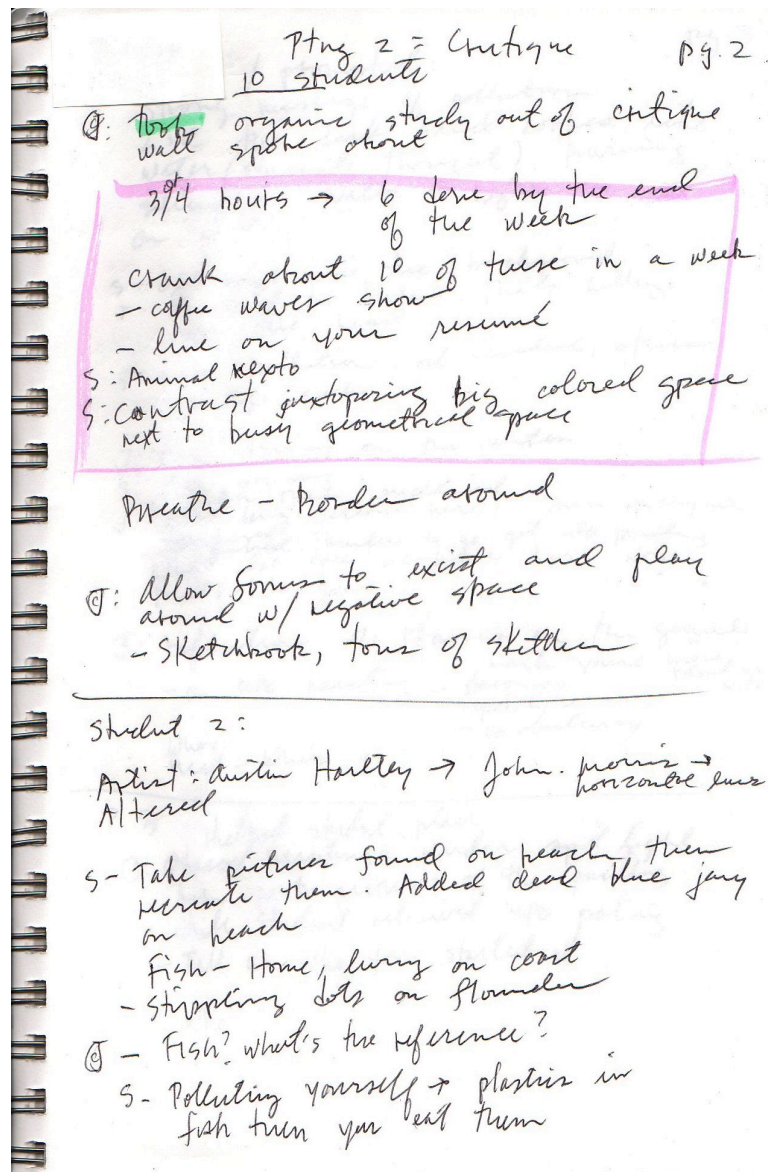 Ptng 2 = Critique pg. 2
10 students
J: took organic study out of critique
wall spoke about
3 or 4 hours → 6 done by the end
of the week
crank about 10 of these in a week
- coffee waves show
- line on your resumé
S: Animal
S: Contrast juxtaposing big colored space
next to busy geometrical space
Breathe - Border around
J: Allow forms to excist and play
around w/ negative space
- Sketchbook, tons of
Student 2:
Artist: Austin Hartley → John. morris →
horizontal lines
Altered
S- Take pictures found on beach then
recreate them. Added dead blue jany
on beach
Fish - Home, living on coast
- Stippling dots on flounder
J - Fish? what's the reference?
S- Polluting yourself → plastics in
fish then you eat them